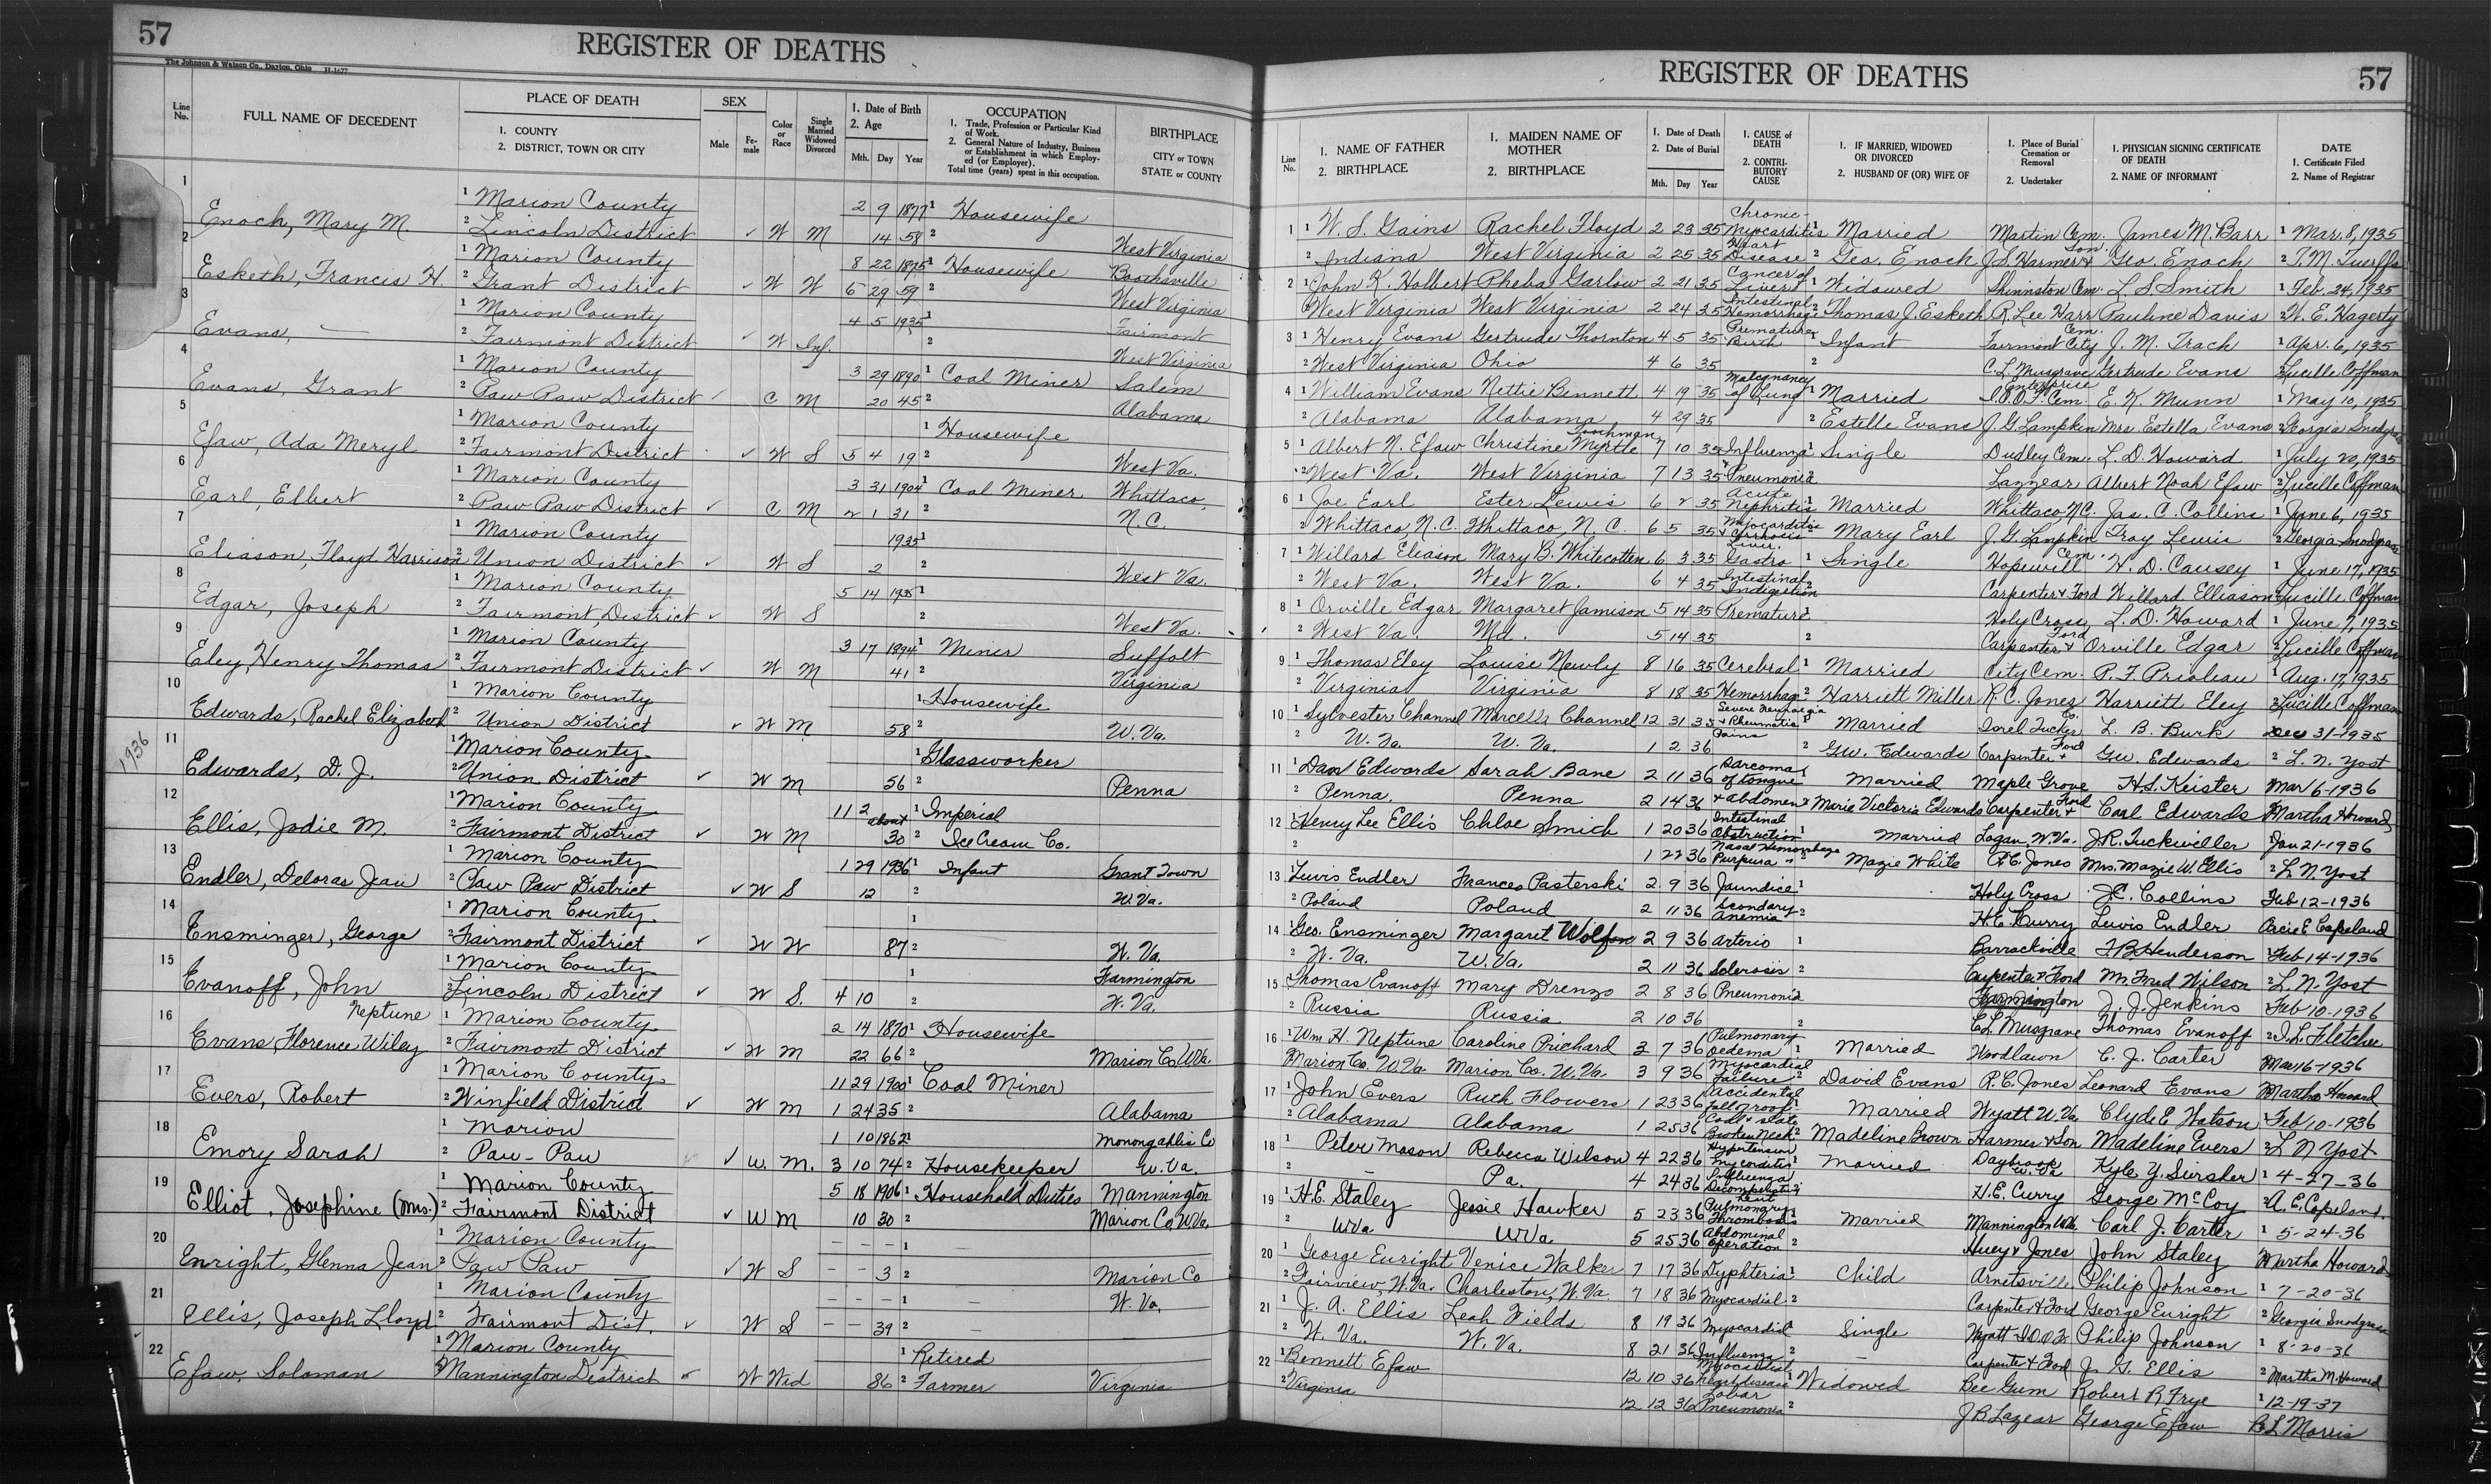 57
REGISTER OF DEATHS
The Johnson & Watson Co., Dayton, Ohio H-1677
Line No.
FULL NAME OF DECEDENT
PLACE OF DEATH
1. COUNTY
2. DISTRICT, TOWN OR CITY
SEX
Male
Female
Color or Race
Single Married Widowed Divorced
1. Date of Birth
2. Age
Mth. Day Year
OCCUPATION
1. Trade, Profession or Particular Kind of Work.
2. General Nature of Industry, Business or Establishment in which Employed (or Employer).
Total time (years) spent in this occupation.
BIRTHPLACE
CITY or TOWN
STATE or COUNTY
1 Marion County 2 9 1877 1 Housewife
Enoch, Mary M. 2 Lincoln District ✓ W M 14 58 2 West Virginia
2 1 Marion County 8 22 1875 1 Housewife Boothsville
Esketh, Francis H. 2 Grant District ✓ W W 5 29 59 2 West Virginia
3 1 Marion County 4 5 1935 1 Fairmont
Evans, — 2 Fairmont District ✓ W Inf. 2 West Virginia
4 1 Marion County 3 29 1890 1 Coal Miner Salem
Evans, Grant 2 Paw Paw District ✓ C M 20 45 2 Alabama
5 1 Marion County 1 Housewife
Efaw, Ada Meryl 2 Fairmont District ✓ W S 5 4 19 2 West Va.
6 1 Marion County 3 31 1904 1 Coal Miner Whittaco,
Earl, Elbert 2 Paw Paw District ✓ C M 2 1 31 2 N.C.
7 1 Marion County 1935 1
Eliason, Floyd Harrison 2 Union District ✓ W S 2 2 West Va.
8 1 Marion County 5 14 1935 1
Edgar, Joseph 2 Fairmont District ✓ W S 2 West Va.
9 1 Marion County 3 17 1894 1 Miner Suffolt
Eley, Henry Thomas 2 Fairmont District ✓ W M 41 2 Virginia
10 1 Marion County 1 Housewife
Edwards, Rachel Elizabeth 2 Union District ✓ W M 58 2 W. Va.
1936
11 1 Marion County 1 Glassworker
Edwards, D. J. 2 Union District ✓ W M 56 2 Penna
12 1 Marion County 11 2 1 Imperial
Ellis, Jodie M. 2 Fairmont District ✓ W M about 30 2 Ice Cream Co.
13 1 Marion County 1 29 1936 1 Infant Grant Town
Endler, Deloras Jean 2 Paw Paw District ✓ W S 12 2 W. Va.
14 1 Marion County 1
Ensminger, George 2 Fairmont District ✓ W W 87 2 W. Va.
15 1 Marion County 1 Farmington
Evanoff, John 2 Lincoln District ✓ W S. 4 10 2 W. Va.
16 Neptune 1 Marion County 2 14 1870 1 Housewife
Evans, Florence Wiley 2 Fairmont District ✓ W M 22 66 2 Marion Co W.Va.
17 1 Marion County 11 29 1900 1 Coal Miner
Evers, Robert 2 Winfield District ✓ W M 1 24 35 2 Alabama
18 1 Marion 1 10 1862 1 Monongahlia Co
Emory Sarah 2 Paw-Paw ✓ W. M. 3 10 74 2 Housekeeper W. Va.
19 1 Marion County 5 18 1906 1 Household Duties Mannington
Elliot, Josephine (Mrs.) 2 Fairmont District ✓ W M 10 30 2 Marion Co, W.Va.
20 1 Marion County — — — 1 —
Enright, Glenna Jean 2 Paw Paw ✓ W S — — 3 2 Marion Co
21 1 Marion County — — — 1 — W. Va.
Ellis, Joseph Lloyd 2 Fairmont Dist. ✓ W S — — 39 2 —
22 1 Marion County 1 Retired
Efaw, Soloman 2 Mannington District ✓ W Wid 86 2 Farmer Virginia
REGISTER OF DEATHS
57
Line No.
1. NAME OF FATHER
2. BIRTHPLACE
1. MAIDEN NAME OF MOTHER
2. BIRTHPLACE
1. Date of Death
2. Date of Burial
Mth. Day Year
1. CAUSE of DEATH
2. CONTRIBUTORY CAUSE
1. IF MARRIED, WIDOWED OR DIVORCED
2. HUSBAND OF (OR) WIFE OF
1. Place of Burial Cremation or Removal
2. Undertaker
1. PHYSICIAN SIGNING CERTIFICATE OF DEATH
2. NAME OF INFORMANT
DATE
1. Certificate Filed
2. Name of Registrar
1 1 W. S. Gains Rachel Floyd 2 23 35 Chronic Myocarditis 1 Married Martin Cem. James M. Barr 1 Mar. 8, 1935
2 Indiana West Virginia 2 25 35 Heart Disease 2 Geo. Enoch J. S. Harmer & Son Geo. Enoch 2 T. M.
2 1 John K. Holbert Pheba Garlow 2 21 35 Cancer of Liver & 1 Widowed Shinnston Cem. L. S. Smith 1 Feb. 24, 1935
West Virginia West Virginia 2 24 35 Intestinal Hemorrhage 2 Thomas J. Esketh R. Lee Harr Pauline Davis 2 W. E. Hagerty
3 1 Henry Evans Gertrude Thornton 4 5 35 Premature Birth 1 Infant Fairmont City Cem. J. M. Trach 1 Apr. 6, 1935
2 West Virginia Ohio 4 6 35 2 C. L. Musgrave Gertrude Evans 2 Lucille Coffman
4 1 William Evans Nettie Bennett 4 19 35 Malignancy of Lung 1 Married Enterprise I.O.O.F. Cem. E. K. Munn 1 May 10, 1935
2 Alabama Alabama 4 29 35 2 Estelle Evans J. G. Lampkin Mrs Estella Evans 2 Georgia Snodgrass
5 1 Albert N. Efaw Christine Myrtle Toothman 7 10 35 Influenza 1 Single Dudley Cem. L. D. Howard 1 July 20, 1935
2 West Va. West Virginia 7 13 35 Pneumonia 2 Lazzear Albert Noah Efaw 2 Lucille Coffman
6 1 Joe Earl Ester Lewis 6 2 35 Acute Nephritis 1 Married Whittaco N.C. Jas. C. Collins 1 June 6, 1935
2 Whittaco, N.C. Whittaco, N.C. 6 5 35 Myocarditis & Cirrhosis Liver. 2 Mary Earl J. G. Lampkin Troy Lewis 2 Georgia Snodgrass
7 1 Willard Eliason Mary B. Whitecotten 6 3 35 Gastro 1 Single Hopewell Cem. H. D. Causey 1 June 17, 1935
2 West Va. West Va. 6 4 35 Intestinal Indigestion 2 Carpenter & Ford Willard Elliason 2 Lucille Coffman
8 1 Orville Edgar Margaret Jamison 5 14 35 Premature 1 Holy Cross L. D. Howard 1 June 7, 1935
2 West Va. Md. 5 14 35 2 Carpenter & Ford Orville Edgar 2 Lucille Coffman
9 1 Thomas Eley Louise Newly 8 16 35 Cerebral 1 Married City Cem. P. F. Prioleau 1 Aug. 17, 1935
2 Virginia Virginia 8 18 35 Hemorrhage 2 Harriett Miller R. C. Jones Harriett Eley 2 Lucille Coffman
10 1 Sylvester Channel Marcella Channel 12 31 35 Severe Neuralgia & Rheumatic Pains 1 Married L. B. Burk Dec 31-1935
2 W. Va. W. Va. 1 2 36 2 G.W. Edwards Carpenter & Ford G.W. Edwards 2 L. N. Yost
11 1 Dan Edwards Sarah Bane 2 11 36 Sarcoma of tongue 1 Married Maple Grove H.S. Keister Mar 6-1936
2 Penna. Penna 2 14 36 & abdomen 2 Marie Victoria Edwards Carpenter & Ford Carl Edwards Martha Howard
12 1 Henry Lee Ellis Chloe Smich 1 20 36 Intestinal Obstruction 1 Married Logan, W.Va. J.R. Tuckwiller Jan 21-1936
2 1 22 36 Nasal Hemorrhage Purpura 2 Mazie White R.C. Jones Mrs. Mazie W. Ellis 2 L. N. Yost
13 1 Lewis Endler Frances Pasterski 2 9 36 Jaundice 1 Holy Cross J.C. Collins Feb 12-1936
2 Poland Poland 2 11 36 Secondary Anemia 2 H.C. Curry Lewis Endler Arcie E Copeland
14 1 Geo. Ensminger Margaret Wolfom 2 9 36 Arterio 1 Barrackville F. B. Henderson Feb 14-1936
2 W. Va. W. Va. 2 11 36 Sclerosis 2 Carpenter & Ford Mr. Fred Wilson 2 L. N. Yost
15 1 Thomas Evanoff Mary Drenzo 2 8 36 Pneumonia Farmington J. J. Jenkins Feb 10-1936
2 Russia Russia 2 10 36 2 C.L. Musgrave Thomas Evanoff 2 J. L. Fletcher
16 1 Wm. H. Neptune Caroline Prichard 3 7 36 Pulmonary Oedema 1 Married Woodlawn C. J. Carter Mar 16-1936
Marion Co. W. Va. Marion Co. W. Va. 3 9 36 Myocardial Failure 2 David Evans R.C. Jones Leonard Evans Martha Howard
17 1 John Evers Ruth Flowers 1 23 36 Accidental Fall of roof 1 Married Wyatt W. Va. Clyde E Watson Feb 10-1936
2 Alabama Alabama 1 25 36 Coal & slate Broken Neck 2 Madeline Brown Harmer & Son Madeline Evers 2 L N Yost
18 1 Peter Mason Rebecca Wilson 4 22 36 Hypertension Myocarditis 1 Married Daybrook W. Va. Kyle Y. 1 4-27-36
2 — Pa. 4 24 36 Influenza 2 H.E. Curry George McCoy 2 A. E. Copeland
19 1 H.E. Staley Jessie Hawker 5 23 36 Pulmonary Thrombosis 1 Married Mannington W.Va. Carl J. Carter 1 5-24-36
2 WVa WVa 5 25 36 Abdominal Operation 2 Huey & Jones John Staley Martha Howard
20 1 George Enright Venice Walker 7 17 36 Dyphteria 1 Child Arnettsville Philip Johnson 1 7-20-36
2 Fairview, W.Va. Charleston, W. Va. 7 18 36 Myocardial 2 Carpenter & Ford George Enright 2 Georgia Snodgrass
21 1 J. A. Ellis Leah Fields 8 19 36 Myocardial 1 Single Wyatt I.O.O.F. Philip Johnson 1 8-20-36
2 W. Va. W. Va. 8 21 36 Influenza 2 — Carpenter & Ford J. G. Ellis 2 Martha M. Howard
22 1 Bennett Efaw 12 10 36 heart disease 1 Widowed Bee Gum Robert R Frye 1 12-19-37
2 Virginia 12 12 36 Lobar Pneumonia 2 J B Lazear George Efaw B L Morris